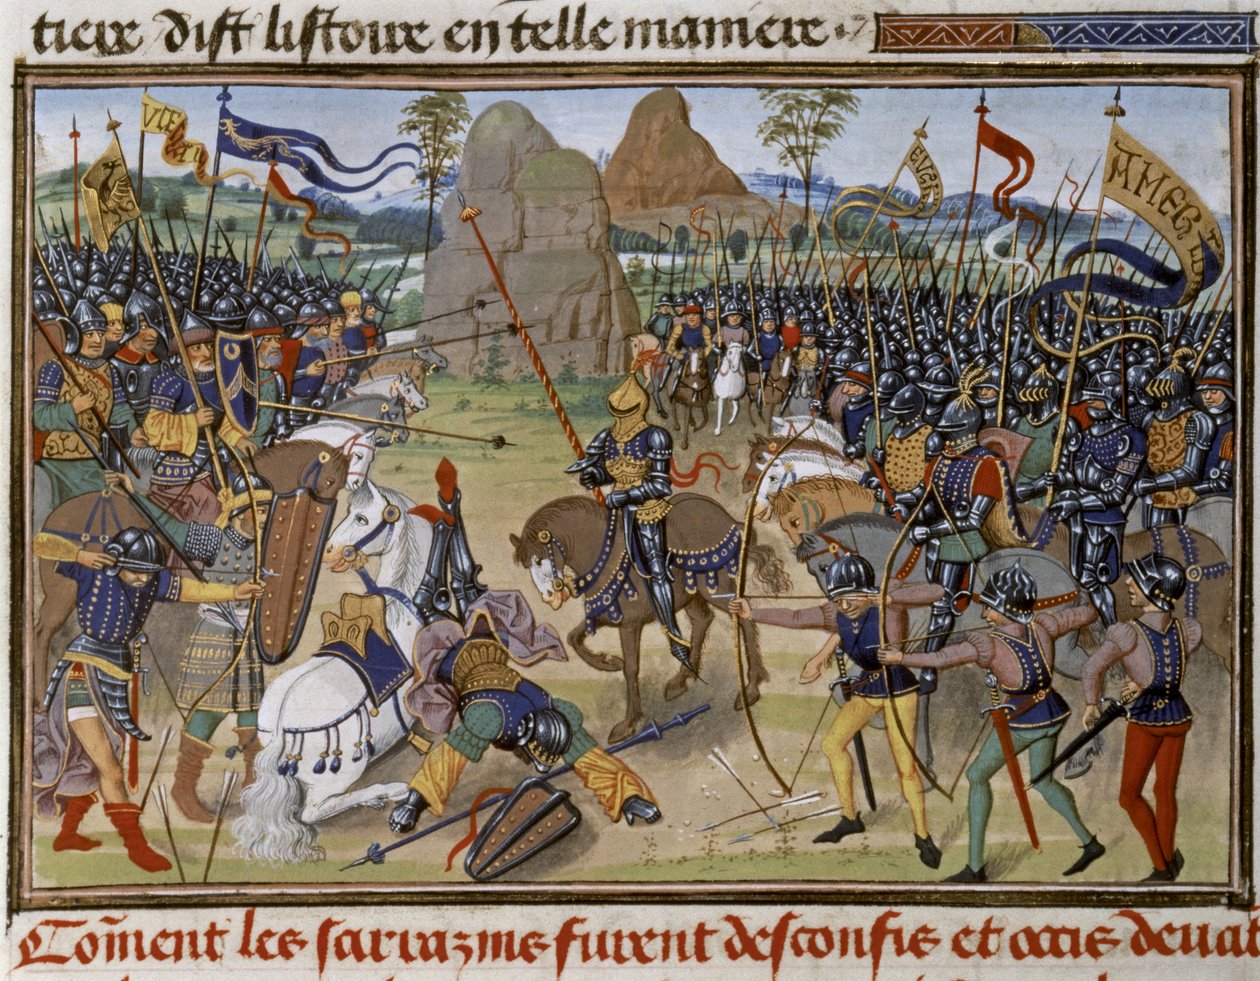 tiere dist listoire en telle maniere .
EVGR
AMEG
Com̃ent les sarrazins furent desconfis et occis deua